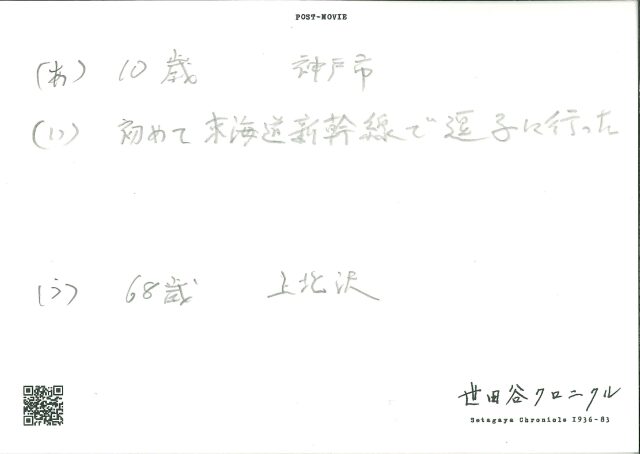 POST-MOVIE
(あ) 10歳 神戸市
(い) 初めて東海道新幹線で逗子に行った
(う) 68歳 上北沢
世田谷クロニクル
Setagaya Chronicle 1936-83